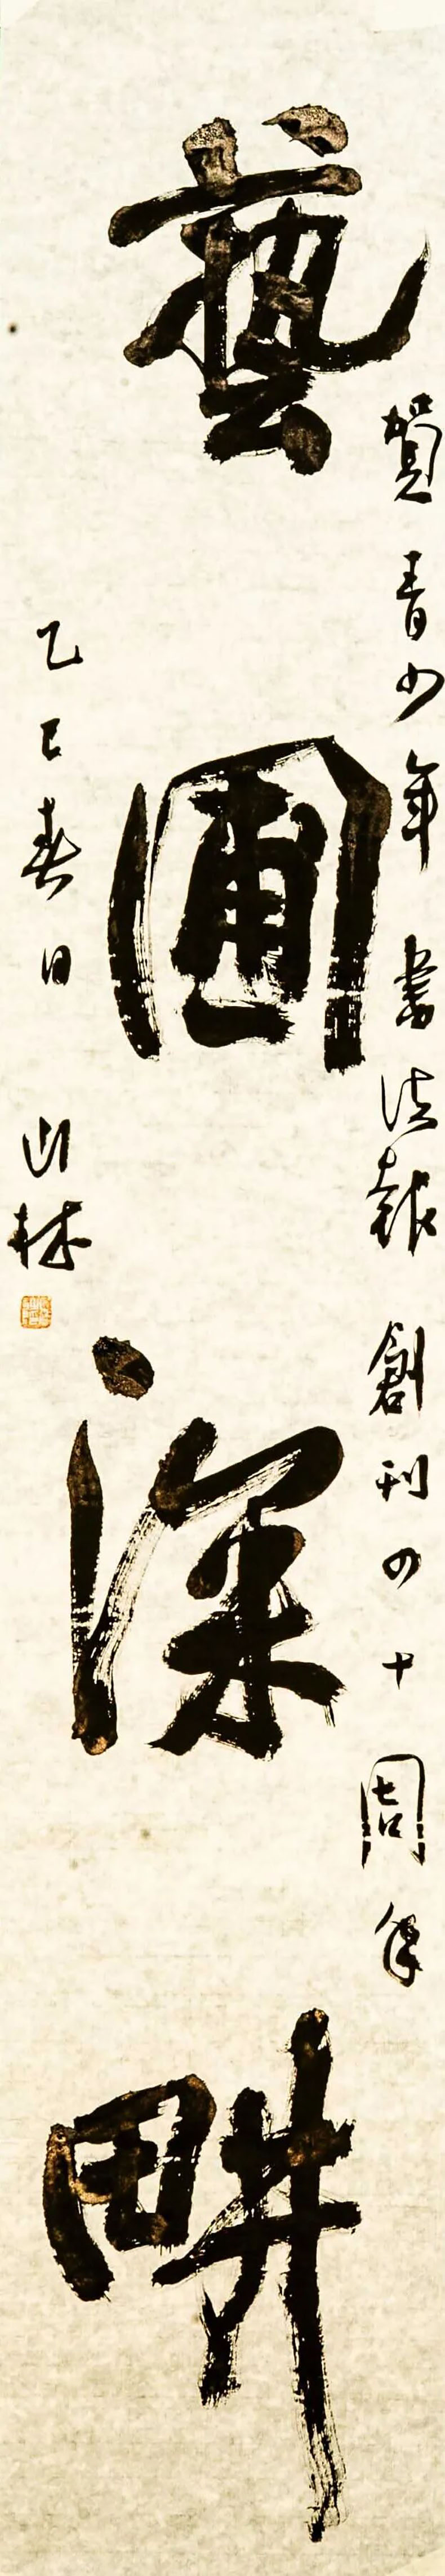 賀青少年書法報創刊四十周年
藝圃深耕
乙巳春日
山林